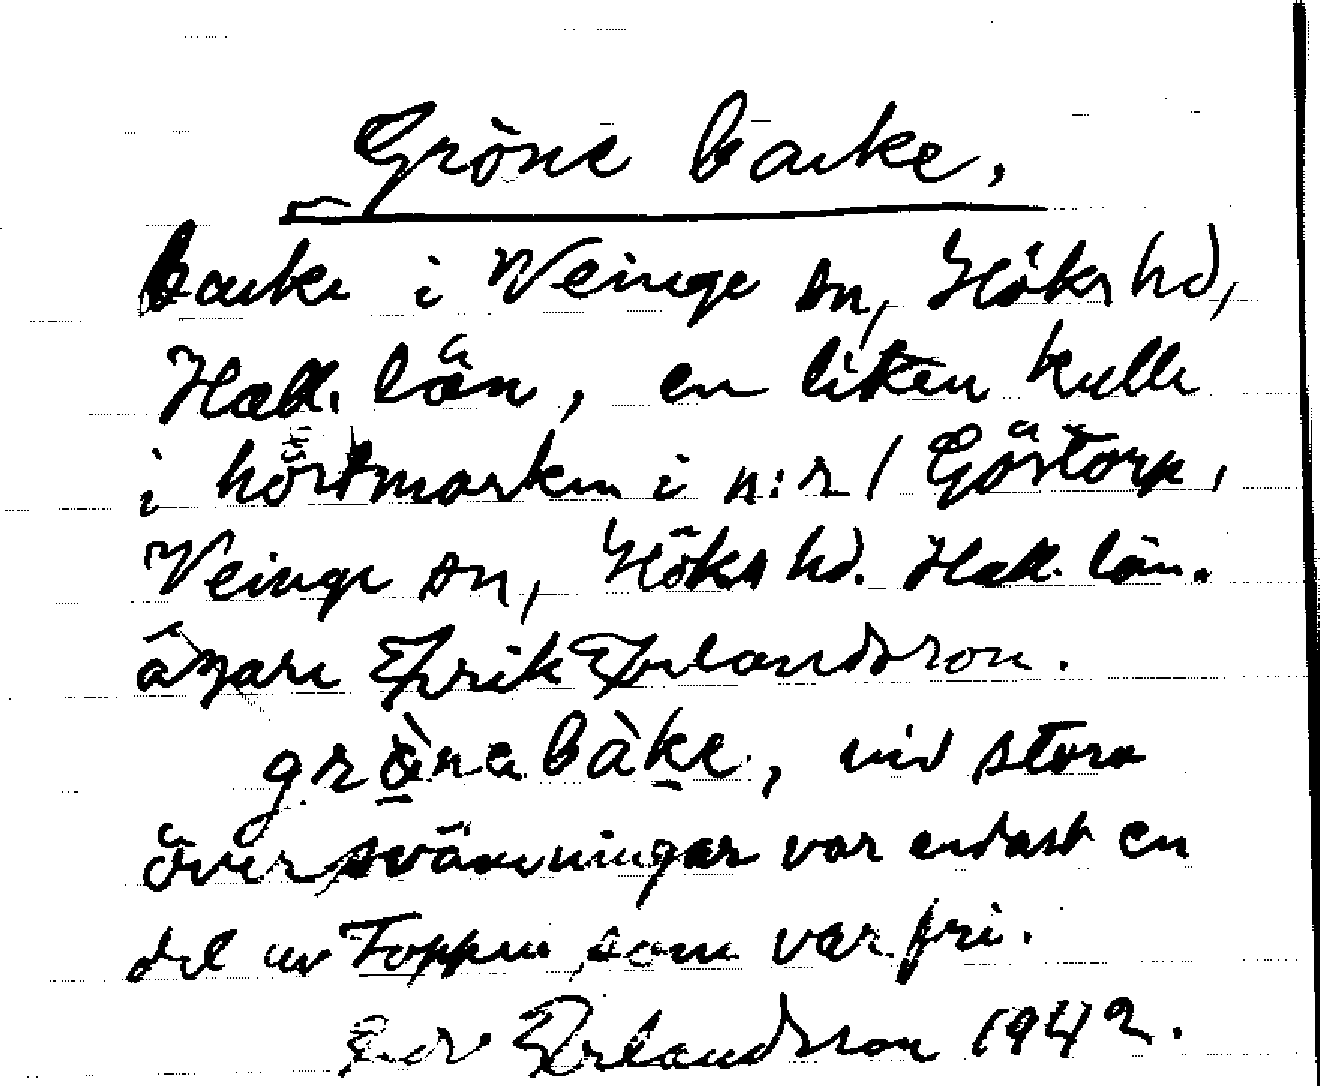 Gröne backe.
backe i Veinge sn, Höks hd,
Hall. län, en liten kulle
i hårdmarken i n:r 1 Göstorp,
Veinge sn, Höks hd. Hall. län.
ägare Erik Erlandsson.
gròne bàke, vid stora
översvämningar var endast en
del av Toppen som var fri.
Erlandsson 1942.